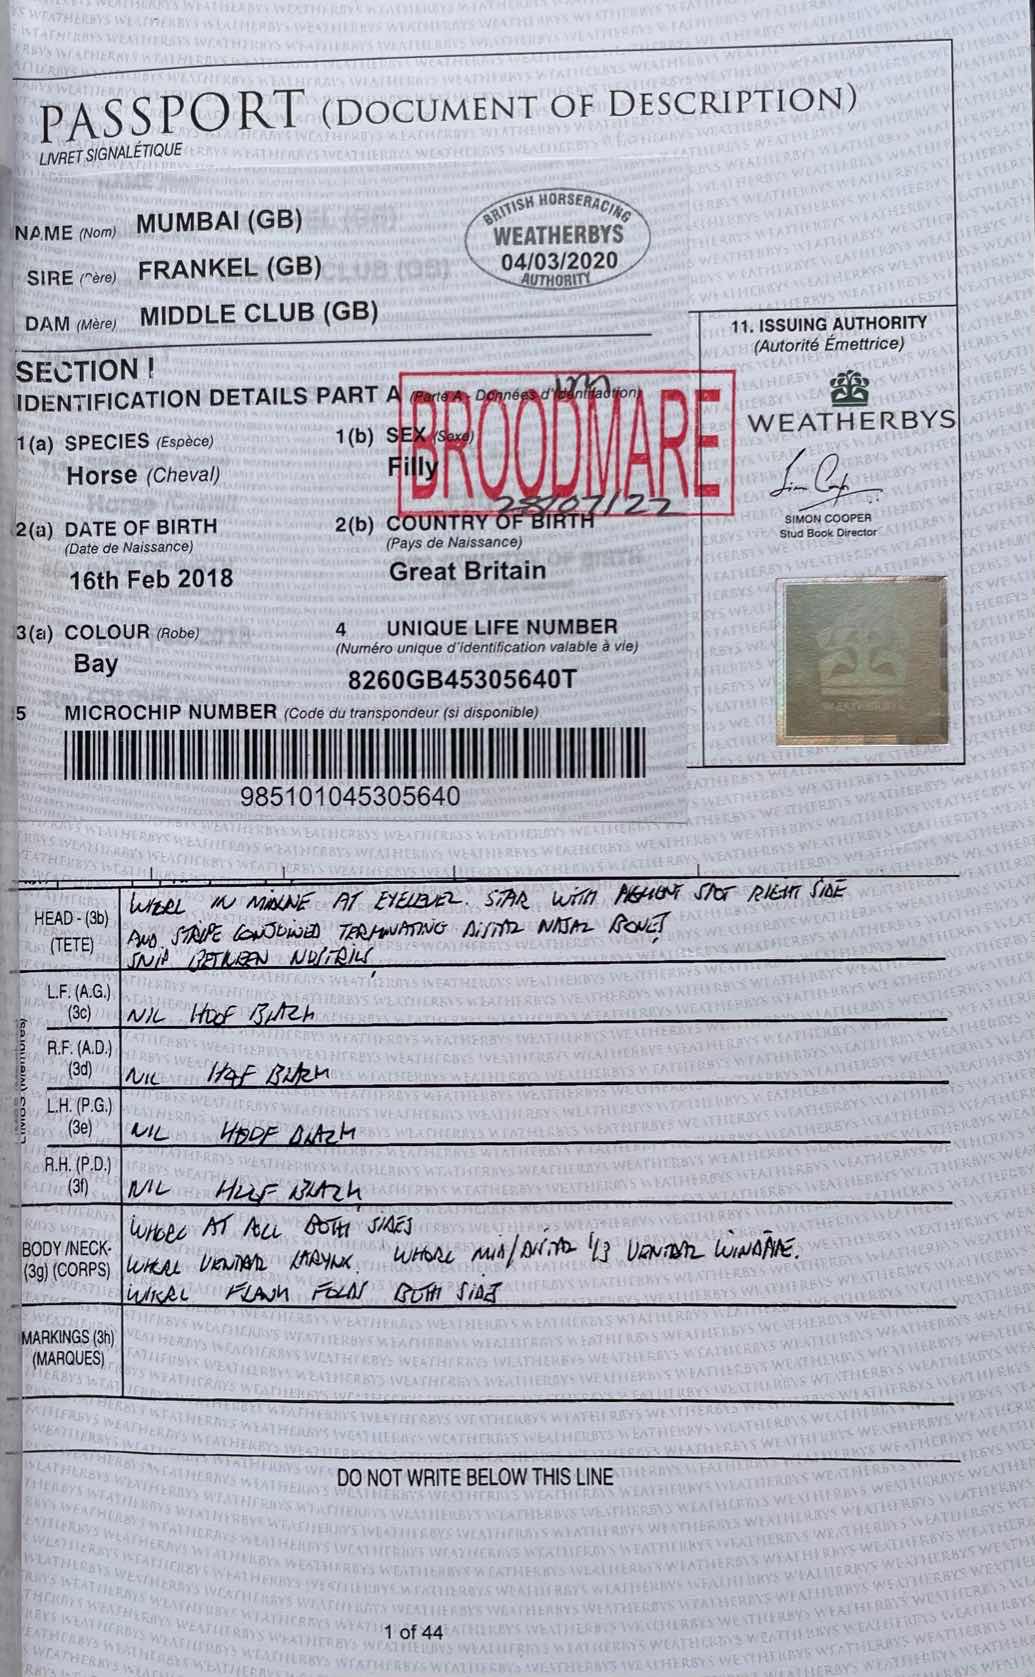 PASSPORT (DOCUMENT OF DESCRIPTION)
LIVRET SIGNALÉTIQUE
NAME (Nom) MUMBAI (GB)
SIRE (ère) FRANKEL (GB)
DAM (Mère) MIDDLE CLUB (GB)
BRITISH HORSERACING
WEATHERBYS
04/03/2020
AUTHORITY
SECTION I
IDENTIFICATION DETAILS PART A (Partie A - Données d'identifaction)
BROODMARE
28/07/22
1(a) SPECIES (Espèce)
Horse (Cheval)
1(b) SEX (Sexe)
Filly
2(a) DATE OF BIRTH
(Date de Naissance)
16th Feb 2018
2(b) COUNTRY OF BIRTH
(Pays de Naissance)
Great Britain
3(a) COLOUR (Robe)
Bay
4 UNIQUE LIFE NUMBER
(Numéro unique d'identification valable à vie)
8260GB45305640T
5 MICROCHIP NUMBER (Code du transpondeur (si disponible)
985101045305640
11. ISSUING AUTHORITY
(Autorité Émettrice)
WEATHERBYS
SIMON COOPER
Stud Book Director
WEATHERBYS
HEAD - (3b)
(TETE)
WHORL IN MIDLINE AT EYELEVEL. STAR WITH PIGMENT SPOT RIGHT SIDE
AND STRIPE CONJOINED TERMINATING DISTAL NASAL BONES
SNIP BETWEEN NOSTRILS
LIMBS (Membres)
L.F. (A.G.)
(3c)
NIL HOOF BLACK
R.F. (A.D.)
(3d)
NIL HOOF BLACK
L.H. (P.G.)
(3e)
NIL HOOF BLACK
R.H. (P.D.)
(3f)
NIL HOOF BLACK
BODY /NECK-
(3g) (CORPS)
WHORL AT ALL BOTH SIDES
WHORL VENTRAL LARYNX. WHORL MID/DISTAL 1/3 VENTRAL WINDPIPE.
WHORL FLANK FOLDS BOTH SIDES
MARKINGS (3h)
(MARQUES)
DO NOT WRITE BELOW THIS LINE
1 of 44